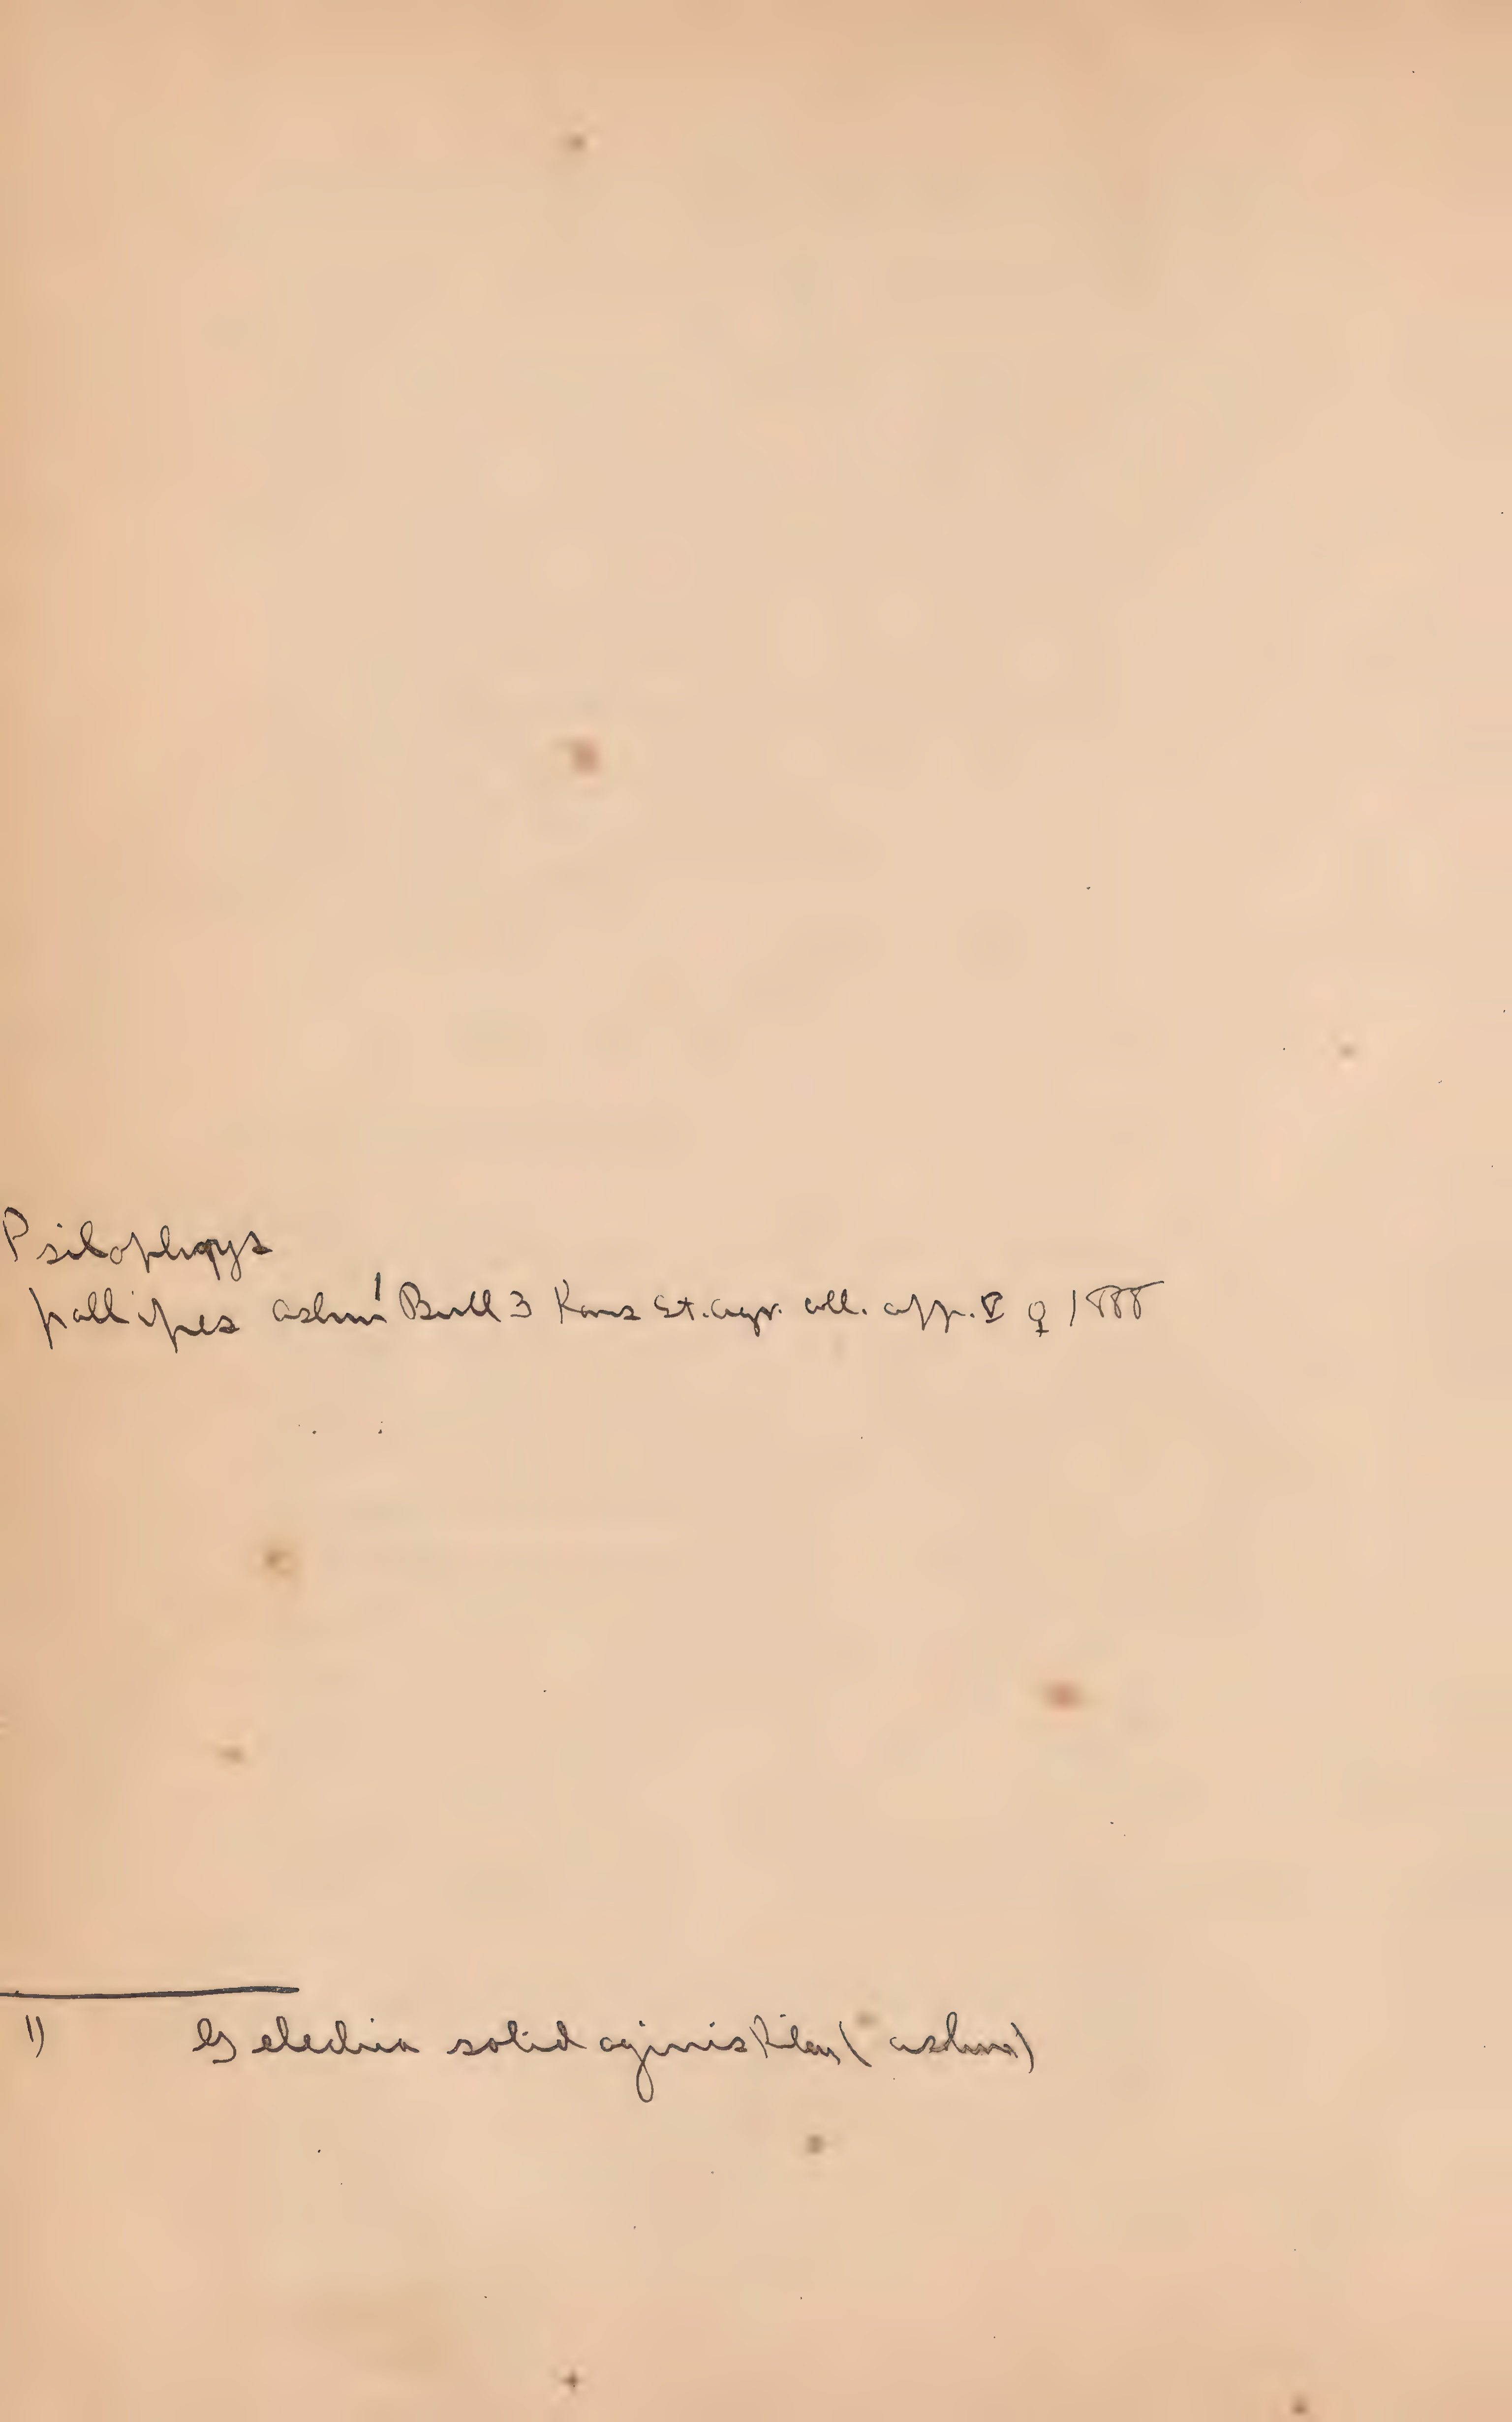 Psilophrys
pallipes ashm¹ Bull 3 Kans St. agr. coll. app. V ♀ 1888
1) Gelechia solidaginis Riley (ashm)